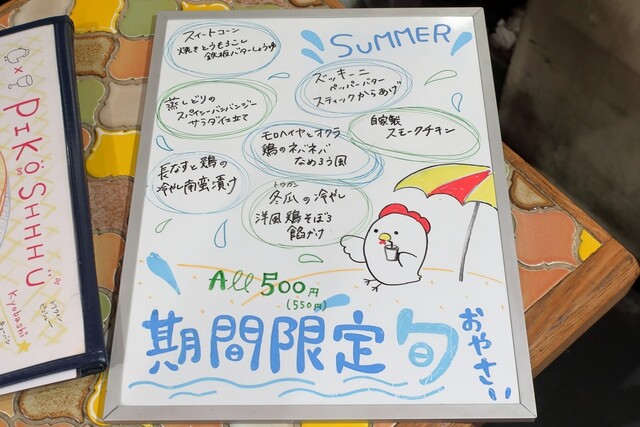 SUMMER
スイートコーン
焼きとうもろこし
鉄板バターしょうゆ
ズッキーニ
ペッパーバター
スティックからあげ
蒸しどりの
スパイシーバンバンジー
サラダ仕立て
モロヘイヤとオクラ
鶏のネバネバ
なめろう風
自家製
スモークチキン
長なすと鶏の
冷やし南蛮漬け
トウガン
冬瓜の冷やし
洋風鶏そぼろ
餡かけ
All 500円
(550円)
期間限定旬
おやさい
PIKŌSHHHÜ
Kyobashi